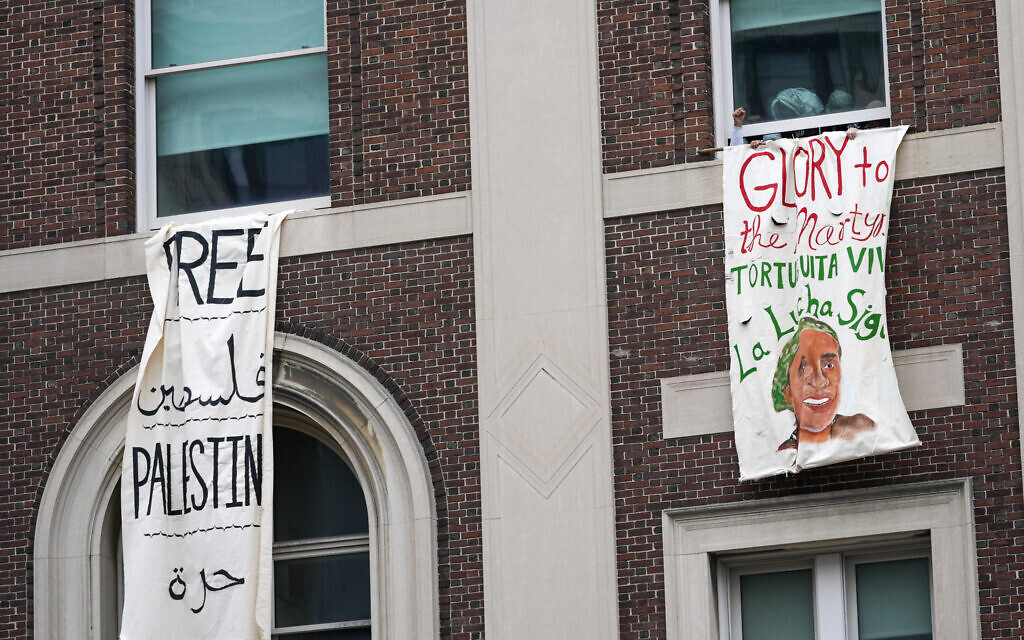 FREE
فلسطين
PALESTIN
حرة
GLORY to
the Martyrs
TORTUGUITA VIV
La Lucha Sigu